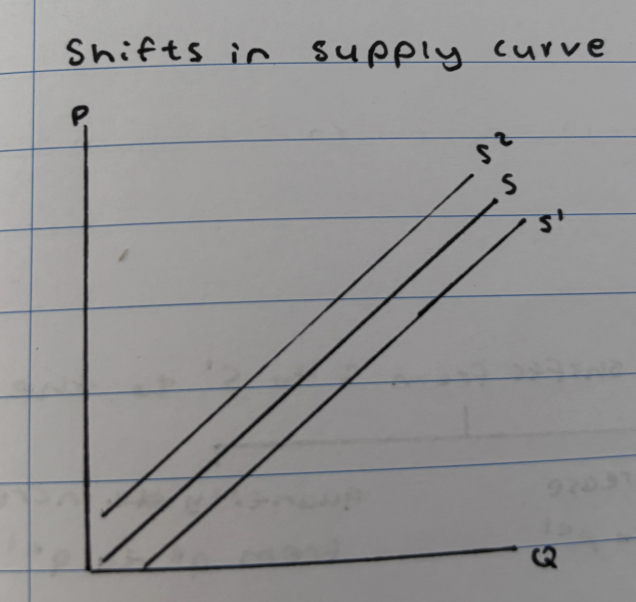 Shifts in supply curve
P
S²
S
S¹
Q